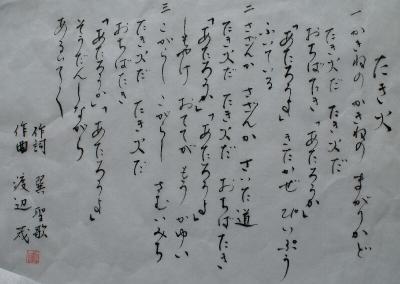 たき火
一 かきねの かきねの まがりかど
たき火だ たき火だ
おちばたき 「あたろうか」
「あたろうよ」 きたかぜ ぴいぷう
ふいている
二 さざんか さざんか さいた道
たき火だ たき火だ おちばたき
「あたろうか」 「あたろうよ」
しもやけ おててが もう かゆい
三 こがらし こがらし さむいみち
たき火だ たき火だ
おちばたき
「あたろうか」 「あたろうよ」
そうだんしながら
あるいてく
作詞 巽 聖歌
作曲 渡辺 茂